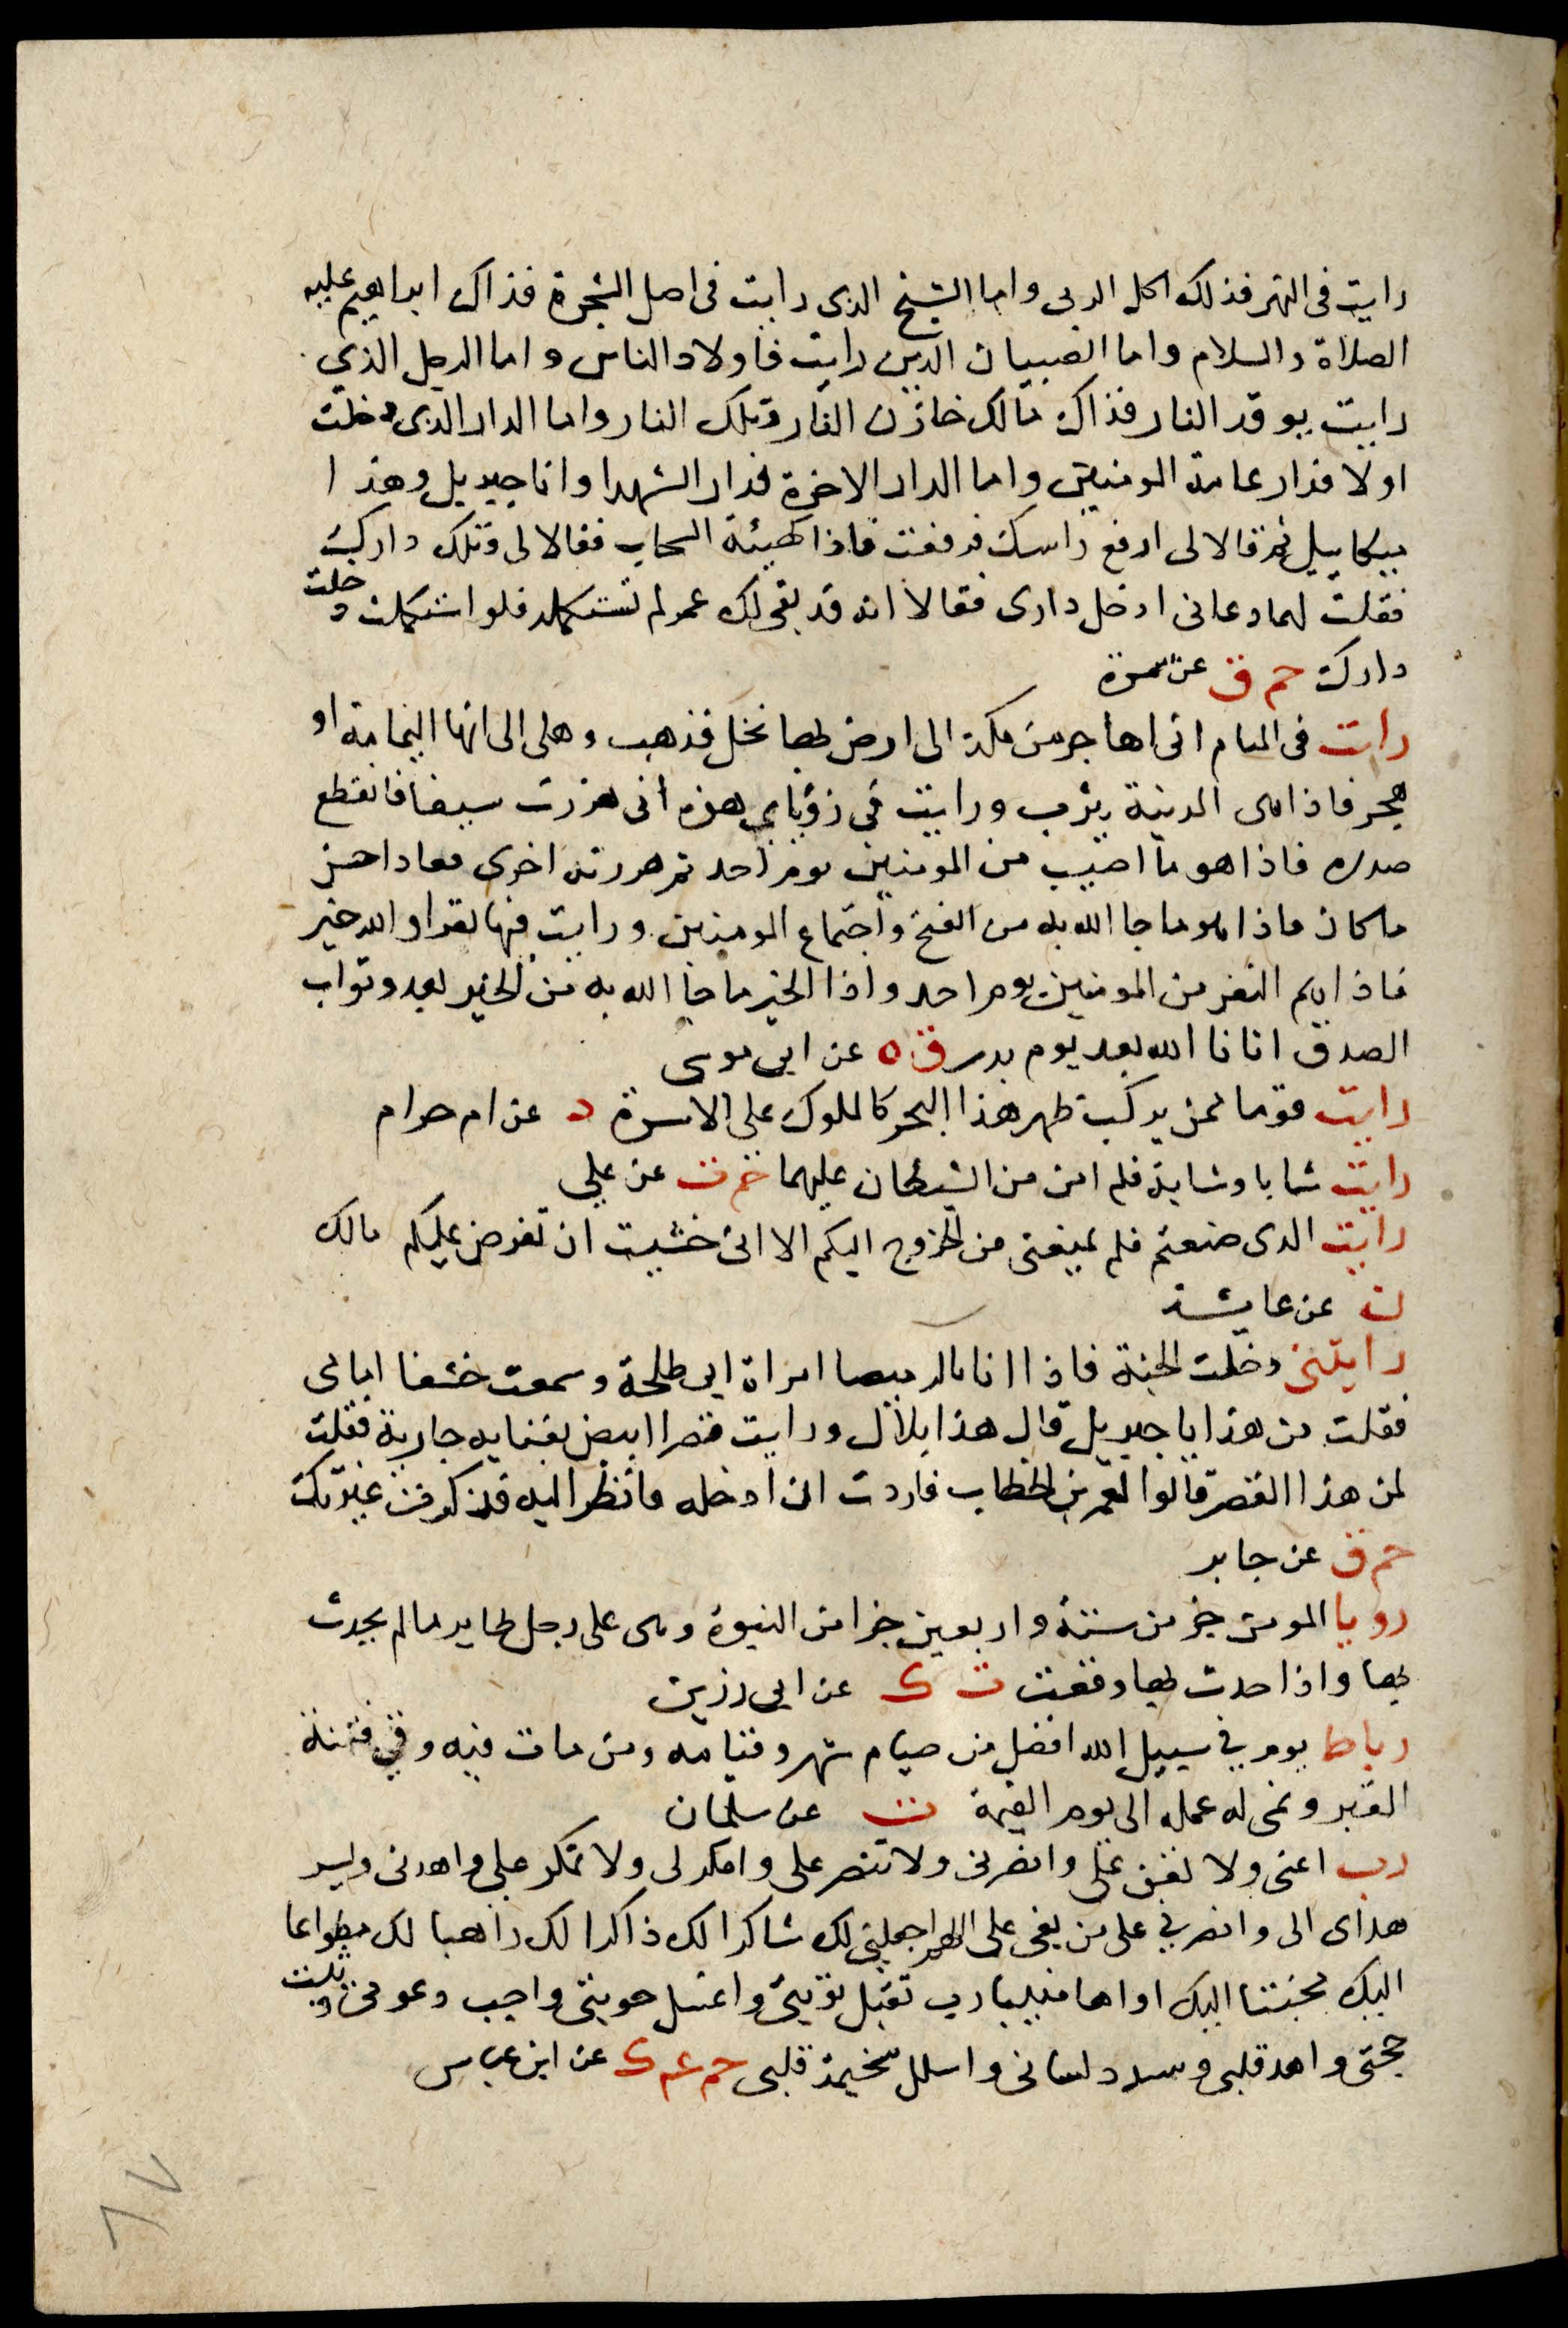 رايت في النهر فذلك اكل الربى واما الشيخ الذى رايت فى اصل الشجرة فذاك ابراهيم عليه
الصلاة والسلام واما الصبيان الذين رايت فاولاد الناس واما الرجل الذي
رايت يوقد النار فذاك مالك خازن النار وتلك النار واما الدار الذى دخلت
اولا فدار عامة المومنين واما الدار الاخرة فدار الشهدا وانا جبريل وهذا
ميكاييل ثم قالا لى ارفع راسك فرفعت فاذا كهيئة السحاب فقالا لى وتلك دارك
فقلت لهما دعانى ادخل دارى فقالا انه قد بقى لك عمر لم تستكمله فلو استكملت دخلت
دارك حم ق عن سمرة
رايت فى المنام انى اهاجر من مكة الى ارض بها نخل فذهب وهلى الى انها اليمامة او
هجر فاذا هى المدينة يثرب ورايت في رؤياي هذه انى هززت سيفا فانقطع
صدره فاذا هو ما اصيب من المومنين يوم احد ثم هززته اخرى فعاد احسن
ما كان فاذا هو ما جا الله به من الفتح واجتماع المومنين ورايت فيها بقرا والله خير
فاذا هم النفر من المومنين يوم احد واذا الخير ما جا الله به من الخير بعد وثواب
الصدق اتانا الله بعد يوم بدر ق ه عن ابى موسى
رايت قوما ممن يركب ظهر هذا البحر كالملوك على الاسرة د عن ام حرام
رايت شابا وشابة فلم امن من الشيطان عليهما حم ت عن علي
رايت الذى صنعتم فلم يمنعنى من الخروج اليكم الا انى خشيت ان تفرض عليكم مالك
ن عن عايشة
رايتنى دخلت الجنة فاذا انا بالرميصا امراة ابى طلحة وسمعت خشفا امامى
فقلت من هذا يا جبريل قال هذا بلال ورايت قصرا ابيض بفنايه جارية فقلت
لمن هذا القصر قالوا لعمر بن الخطاب فاردت ان ادخله فانظر اليه فذكرت غيرتك
حم ق عن جابر
رويا المومن جز من ستة واربعين جزا من النبوة وهى على رجل طاير ما لم يحدث
بها واذا حدث بها وقعت ت ك عن ابى رزين
رباط يوم في سبيل الله افضل من صيام شهر وقيامه ومن مات فيه وقي فتنة
القبر ونمى له عمله الى يوم القيمة ت عن سلمان
رب اعنى ولا تعن على وانصرنى ولا تنصر على وامكر لى ولا تمكر على واهدنى ويسر
هداى الى وانصرني على من بغى على اللهم اجعلنى لك شاكرا لك ذاكرا لك راهبا لك مطواعا
اليك مخبتا اليك اواها منيبا رب تقبل توبتى واغسل حوبتى واجب دعوتى وثبت
حجتى واهد قلبى وسدد لسانى واسلل سخيمة قلبى حم عم ك عن ابن عباس
٦٧